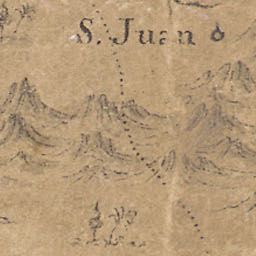 S. Juan